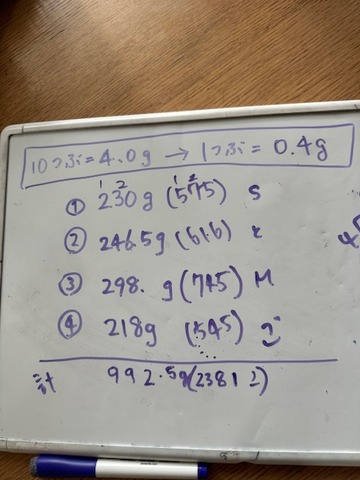 10つぶ=4.0g → 1つぶ= 0.4g
① 230g (575) S
② 246.5g (616) K
③ 298. g (745) M
④ 218g (545)
計 992.5g (2381